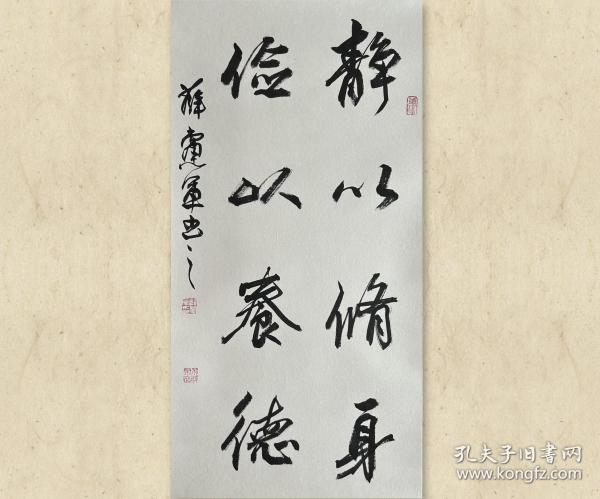 静以脩身
俭以养德
薛宪军书之
孔夫子旧书网
www.kongfz.com